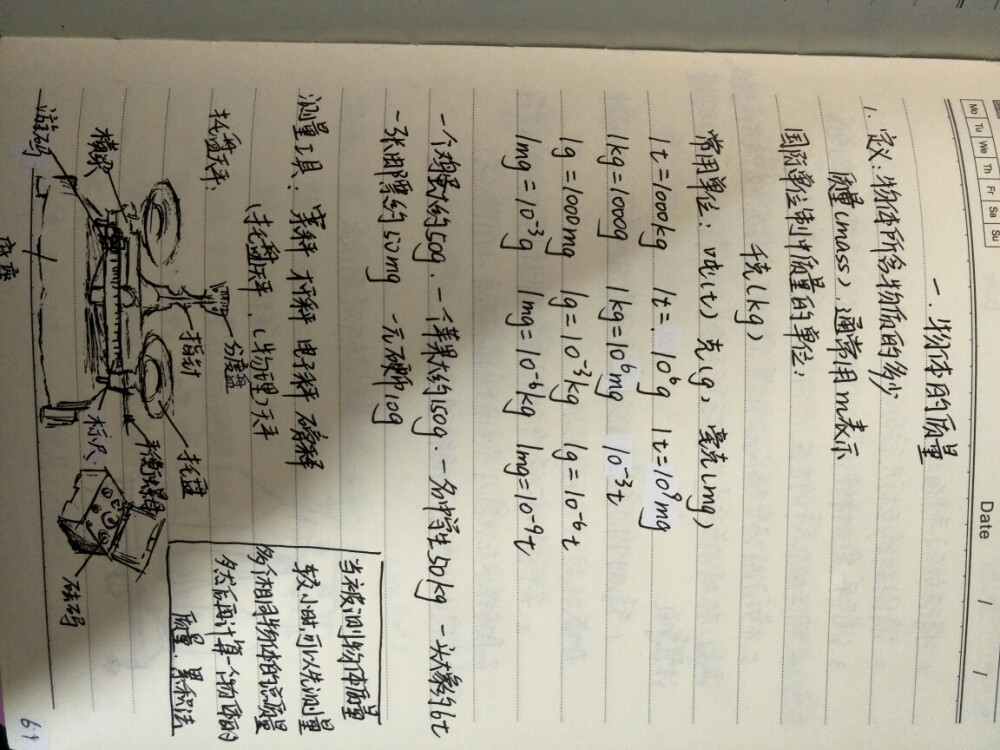 Mo Tu We Th Fr Sa Su
Date / /
一. 物体的质量
1. 定义: 物体所含物质的多少
质量(mass), 通常用m表示
国际单位制中质量的单位:
千克(kg)
常用单位: 吨(t) 克(g) 毫克(mg)
1t=1000kg 1t=10⁶g 1t=10⁹mg
1kg=1000g 1kg=10⁶mg 10⁻³t
1g=1000mg 1g=10⁻³kg 1g=10⁻⁶t
1mg=10⁻³g 1mg=10⁻⁶kg 1mg=10⁻⁹t
一个鸡蛋大约50g. 一个苹果大约150g. 一名中学生50kg 一头大象约6t
一张邮票约50mg 一元硬币10g
测量工具: 案秤 杆秤 电子秤 磅秤
(托盘天秤, (物理)天平
当被测物体质量
较小时, 可以先测量
多个相同物体的总质量
然后再计算一个物体的
质量, 累积法
托盘天秤:
分度盘
指针
托盘
横梁
平衡螺母
游码
标尺
砝码
底座